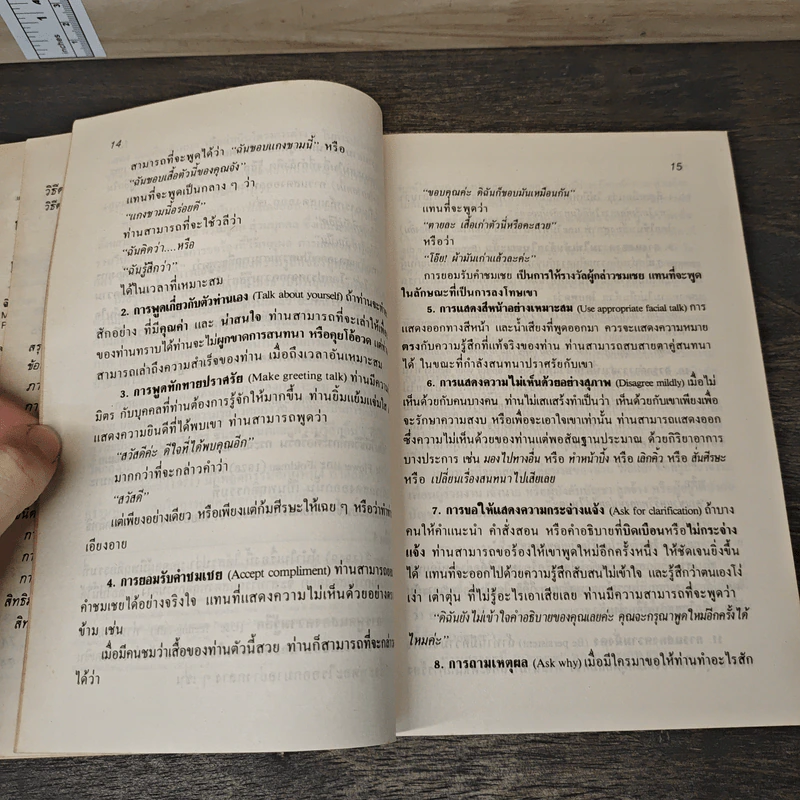 14
สามารถที่จะพูดได้ว่า "ฉันชอบแกงชามนี้" หรือ
"ฉันชอบเสื้อตัวนี้ของคุณจัง"
แทนที่จะพูดเป็นกลาง ๆ ว่า
"แกงชามนี้อร่อยดี"
ท่านสามารถที่จะใช้วลีว่า
"ฉันคิดว่า....หรือ
"ฉันรู้สึกว่า"
ได้ในเวลาที่เหมาะสม
2. การพูดเกี่ยวกับตัวท่านเอง (Talk about yourself) ถ้าท่านจะทำ
สักอย่าง ที่มีคุณค่า และ น่าสนใจ ท่านสามารถที่จะเล่าให้
ของท่านทราบได้ท่านจะไม่ผูกขาดการสนทนา หรือคุยโอ้อวด
สามารถเล่าถึงความสำเร็จของท่าน เมื่อถึงเวลาอันเหมาะสม
3. การพูดทักทายปราศรัย (Make greeting talk) ท่านมีความ
มิตร กับบุคคลที่ท่านต้องการรู้จักให้มากขึ้น ท่านยิ้มแย้มแจ่มใส
แสดงความยินดีที่ได้พบเขา ท่านสามารถพูดว่า
"สวัสดีค่ะ ดีใจที่ได้พบคุณอีก"
มากกว่าที่จะกล่าวคำว่า
"สวัสดี"
แต่เพียงอย่างเดียว หรือเพียงแต่ก้มศีรษะให้เฉย ๆ หรือว่าทำท่า
เอียงอาย
4. การยอมรับคำชมเชย (Accept compliment) ท่านสามารถยอม
คำชมเชยได้อย่างจริงใจ แทนที่แสดงความไม่เห็นด้วยอย่างตรง
ข้าม เช่น
เมื่อมีคนชมว่าเสื้อของท่านตัวนี้สวย ท่านก็สามารถที่จะกล่าว
ได้ว่า
15
"ขอบคุณค่ะ ดิฉันก็ชอบมันเหมือนกัน"
แทนที่จะพูดว่า
"ตายละ เสื้อเก่าตัวนี้หรือคะสวย"
หรือว่า
"โอ๊ย! ผ้ามันเก่าแล้วละค่ะ"
การยอมรับคำชมเชย เป็นการให้รางวัลผู้กล่าวชมเชย แทนที่จะพูด
ในลักษณะที่เป็นการลงโทษเขา
5. การแสดงสีหน้าอย่างเหมาะสม (Use appropriate facial talk) การ
แสดงออกทางสีหน้า และน้ำเสียงที่พูดออกมา ควรจะแสดงความหมาย
ตรงกับความรู้สึกที่แท้จริงของท่าน ท่านสามารถสบสายตาคู่สนทนา
ได้ ในขณะที่กำลังสนทนาปราศรัยกับเขา
6. การแสดงความไม่เห็นด้วยอย่างสุภาพ (Disagree mildly) เมื่อไม่
เห็นด้วยกับคนบางคน ท่านไม่เสแสร้งทำเป็นว่า เห็นด้วยกับเขาเพียงเพื่อ
จะรักษาความสงบ หรือเพื่อจะเอาใจเขาเท่านั้น ท่านสามารถแสดงออก
ซึ่งความไม่เห็นด้วยของท่านแต่พอสัณฐานประมาณ ด้วยกิริยาอาการ
บางประการ เช่น มองไปทางอื่น หรือ ทำหน้าบึ้ง หรือ เลิกคิ้ว หรือ สั่นศีรษะ
หรือ เปลี่ยนเรื่องสนทนาไปเสียเลย
7. การขอให้แสดงความกระจ่างแจ้ง (Ask for clarification) ถ้าบาง
คนให้คำแนะนำ คำสั่งสอน หรือคำอธิบายที่บิดเบือนหรือไม่กระจ่าง
แจ้ง ท่านสามารถขอร้องให้เขาพูดใหม่อีกครั้งหนึ่ง ให้ชัดเจนยิ่งขึ้น
ได้ แทนที่จะออกไปด้วยความรู้สึกสับสนไม่เข้าใจ และรู้สึกว่าตนเองโง่
เง่า เต่าตุ่น ที่ไม่รู้อะไรเอาเสียเลย ท่านมีความสามารถที่จะพูดว่า
"ดิฉันยังไม่เข้าใจคำอธิบายของคุณเลยค่ะ คุณจะกรุณาพูดใหม่อีกครั้งได้
ไหมค่ะ"
8. การถามเหตุผล (Ask why) เมื่อมีใครมาขอให้ท่านทำอะไรสัก